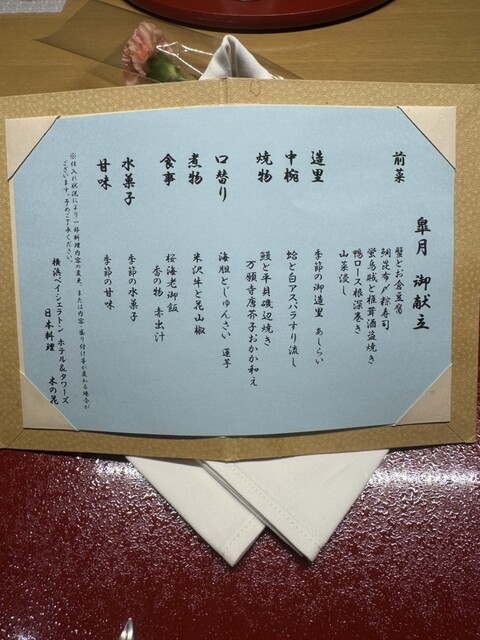 皐月 御献立
前菜
蟹とお倉豆腐
鯛昆布〆粽寿司
蛍烏賊と椎茸酒盗焼き
鴨ロース根深巻き
山菜浸し
造里
季節の御造里 あしらい
中椀
蛤と白アスパラすり流し
焼物
鰻と平貝磯辺焼き
万願寺唐芥子おかか和え
口替り
海胆とじゅんさい 蓮芋
煮物
米沢牛と花山椒
食事
桜海老御飯
香の物 赤出汁
水菓子
季節の水菓子
甘味
季節の甘味
※仕入れ状況により一部料理内容の変更、または内容、盛り付け等が変わる場合が
ございます。予めご了承ください。
横浜ベイシェラトン ホテル&タワーズ
日本料理 木の花